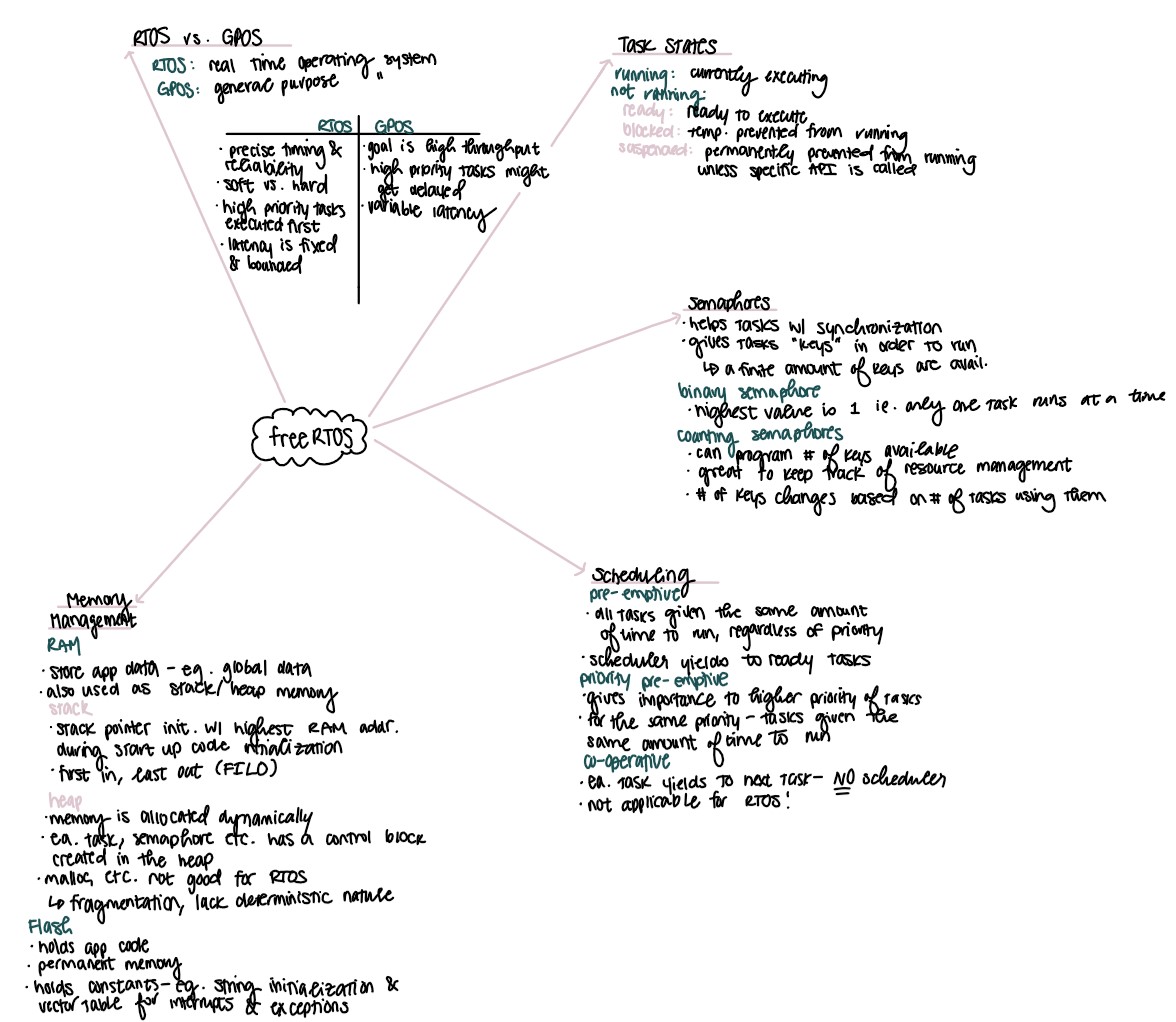 RTOS vs. GPOS
RTOS: real time operating system
GPOS: general purpose "
RTOS GPOS
· precise timing &
reliability
· soft vs. hard
· high priority tasks
executed first
· latency is fixed
& bounded
· goal is high throughput
· high priority tasks might
get delayed
· variable latency
Task States
running: currently executing
not running:
ready: ready to execute
blocked: temp. prevented from running
suspended: permanently prevented from running
unless specific API is called
semaphores
· helps tasks w/ synchronization
· gives tasks "keys" in order to run
↳ a finite amount of keys are avail.
binary semaphore
· highest value is 1 ie. only one task runs at a time
counting semaphores
· can program # of keys available
· great to keep track of resource management
· # of keys changes based on # of tasks using them
freeRTOS
Scheduling
pre-emptive
· all tasks given the same amount
of time to run, regardless of priority
· scheduler yields to ready tasks
priority pre-emptive
· gives importance to higher priority of tasks
· for the same priority - tasks given the
same amount of time to run
co-operative
· ea. task yields to next task - NO scheduler
· not applicable for RTOS!
Memory
Management
RAM
· store app data - eg. global data
· also used as stack/heap memory
stack
· stack pointer init. w/ highest RAM addr.
during start up code initialization
· first in, last out (FILO)
heap
· memory is allocated dynamically
· ea. task, semaphore etc. has a control block
created in the heap
· malloc, etc. not good for RTOS
↳ fragmentation, lack deterministic nature
Flash
· holds app code
· permanent memory
· holds constants - eg. string initialization &
vector table for interrupts & exceptions